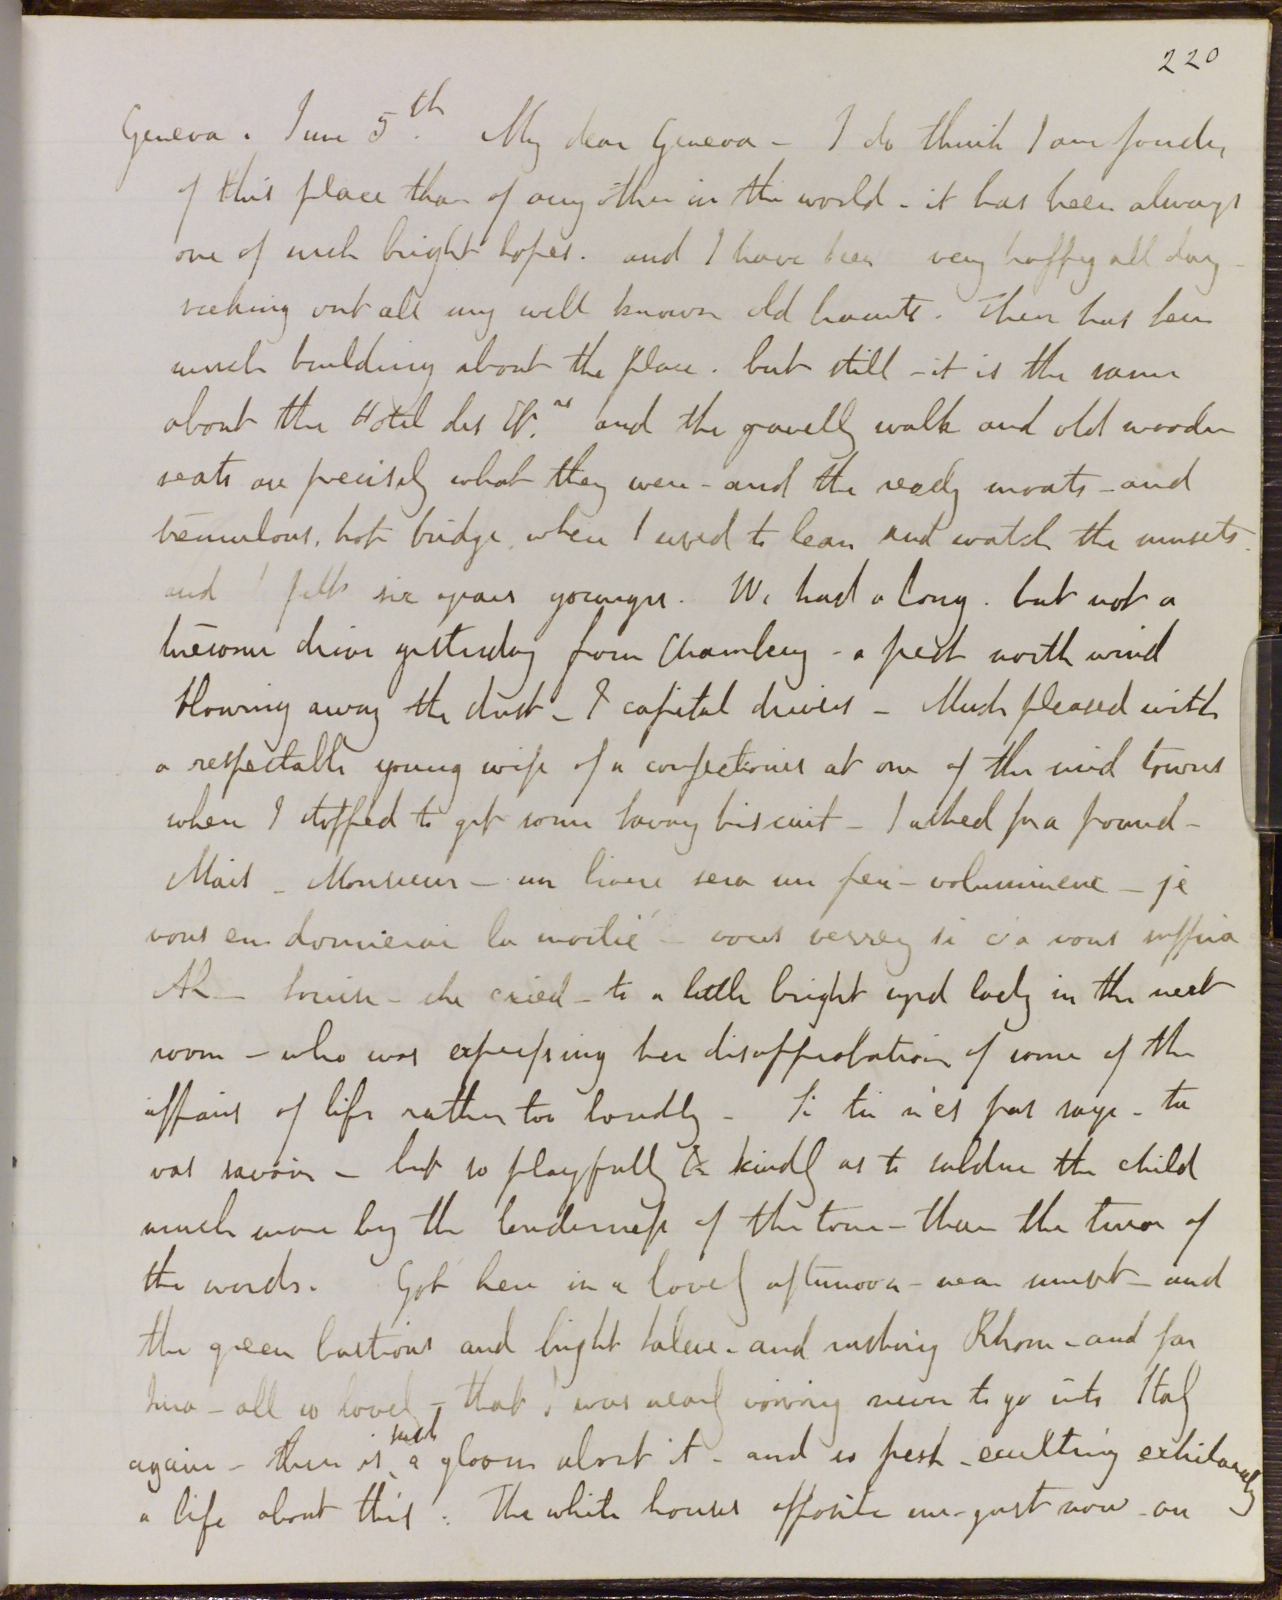 220
Geneva. June 5th. My dear Geneva - I do think I am fonder
of this place than of any other in the world - it has been always
one of such bright hopes. and I have been very happy all day -
seeking out all my well known old haunts. There has been
much building about the place. but still - it is the same
about the Hotel des and the gravelly walk and old wooden
seats are precisely what they were - and the reedy moats - and
tremulous, hot bridge, where I used to lean and watch the sunsets.
and I felt six years younger. We had a long. but not a
tiresome drive yesterday from Chambery - a fresh north wind
blowing away the dust - & capital drivers - Much pleased with
a respectable young wife of a confectioner at one of the mid towns
where I stopped to get some savoy biscuit - I asked for a pound -
Mais - Monsieur - un livre sera un peu - volumineux - je
vous en donnerai la moitié - vous verrez si ca vous suffira
Ah - Louise - she cried - to a little bright eyed lady in the next
room - who was expressing her disapprobation of some of the
affairs of life rather too loudly - Si tu n'es pas sage - tu
vas savoir - but so playfully & kindly as to subdue the child
much more by the tenderness of the tone - than the terror of
the words. Got here in a lovely afternoon - near sunset - and
the green bastions and bright Saleve - and rushing Rhone - and far
Jura - all so lovely - that I was nearly vowing never to go into Italy
again - there is such a gloom about it - and so fresh - exulting exhilarating
a life about this. The white houses opposite me - just now - are